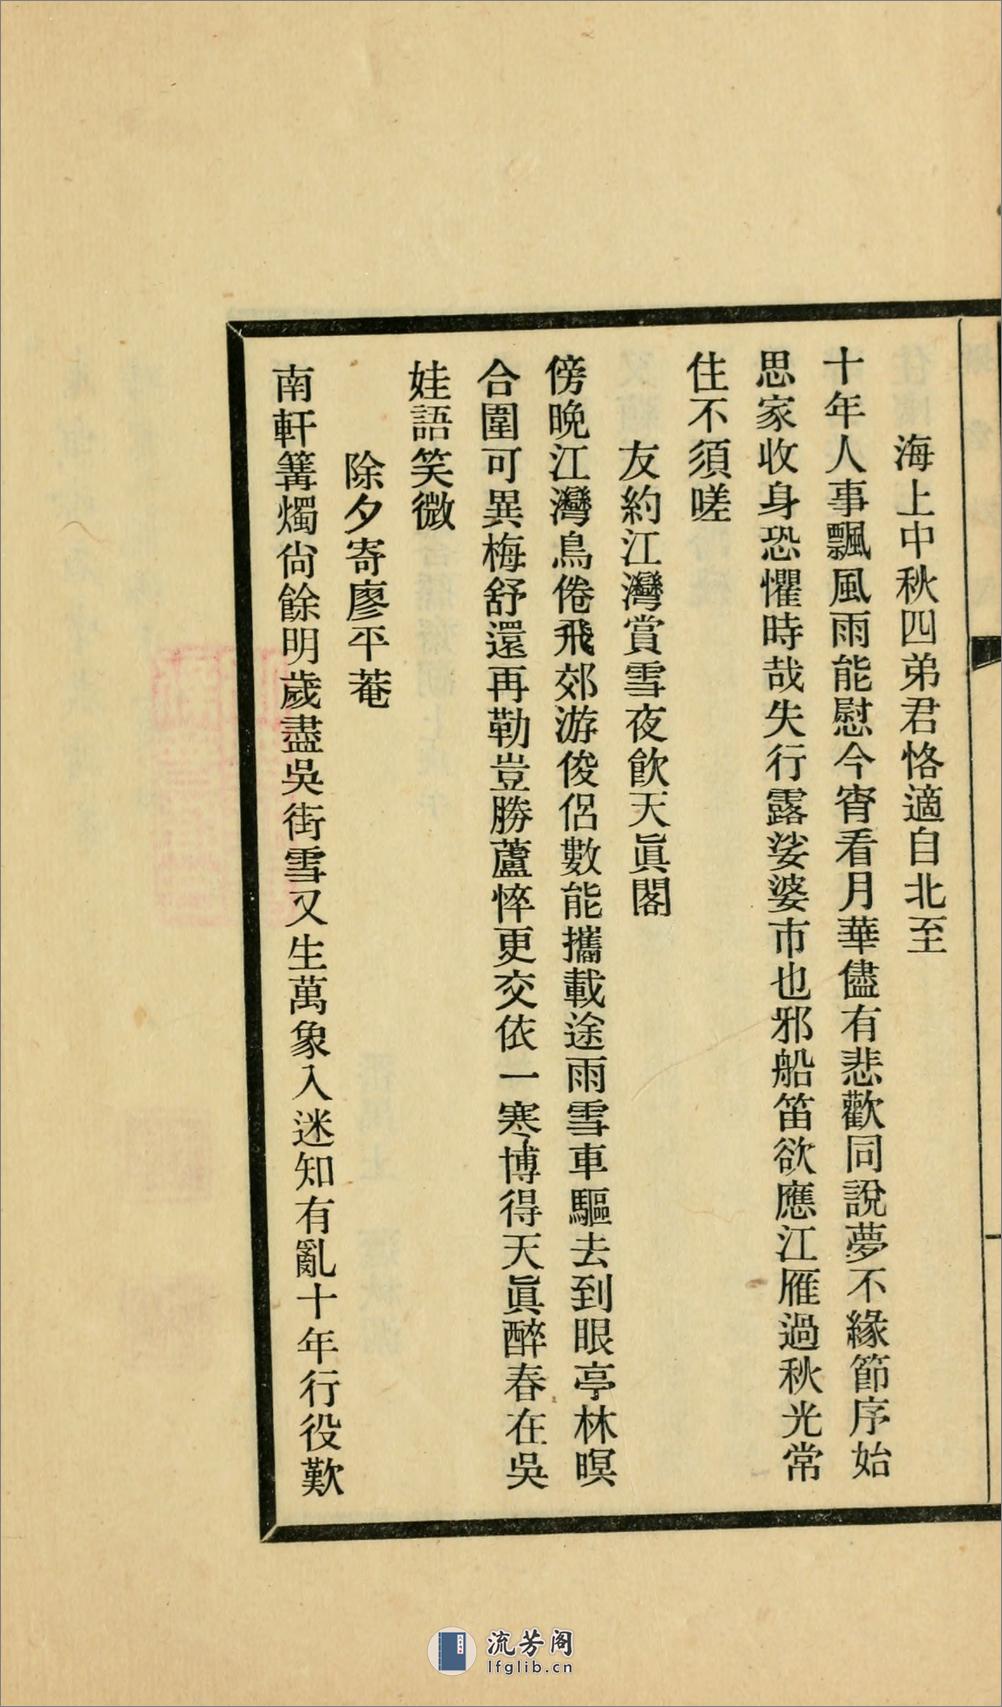 海上中秋四弟君恪適自北至
十年人事飄風雨能慰今宵看月華儘有悲歡同說夢不緣節序始
思家收身恐懼時哉失行露娑婆市也邪船笛欲應江雁過秋光常
住不須嗟
友約江灣賞雪夜飲天眞閣
傍晚江灣鳥倦飛郊游俊侶數能攜載途雨雪車驅去到眼亭林暝
合圍可異梅舒還再勒豈勝蘆悴更交依一寒博得天眞醉春在吳
娃語笑微
除夕寄廖平菴
南軒篝燭尙餘明歲盡吳街雪又生萬象入迷知有亂十年行役歎
流芳阁
lfglib.cn